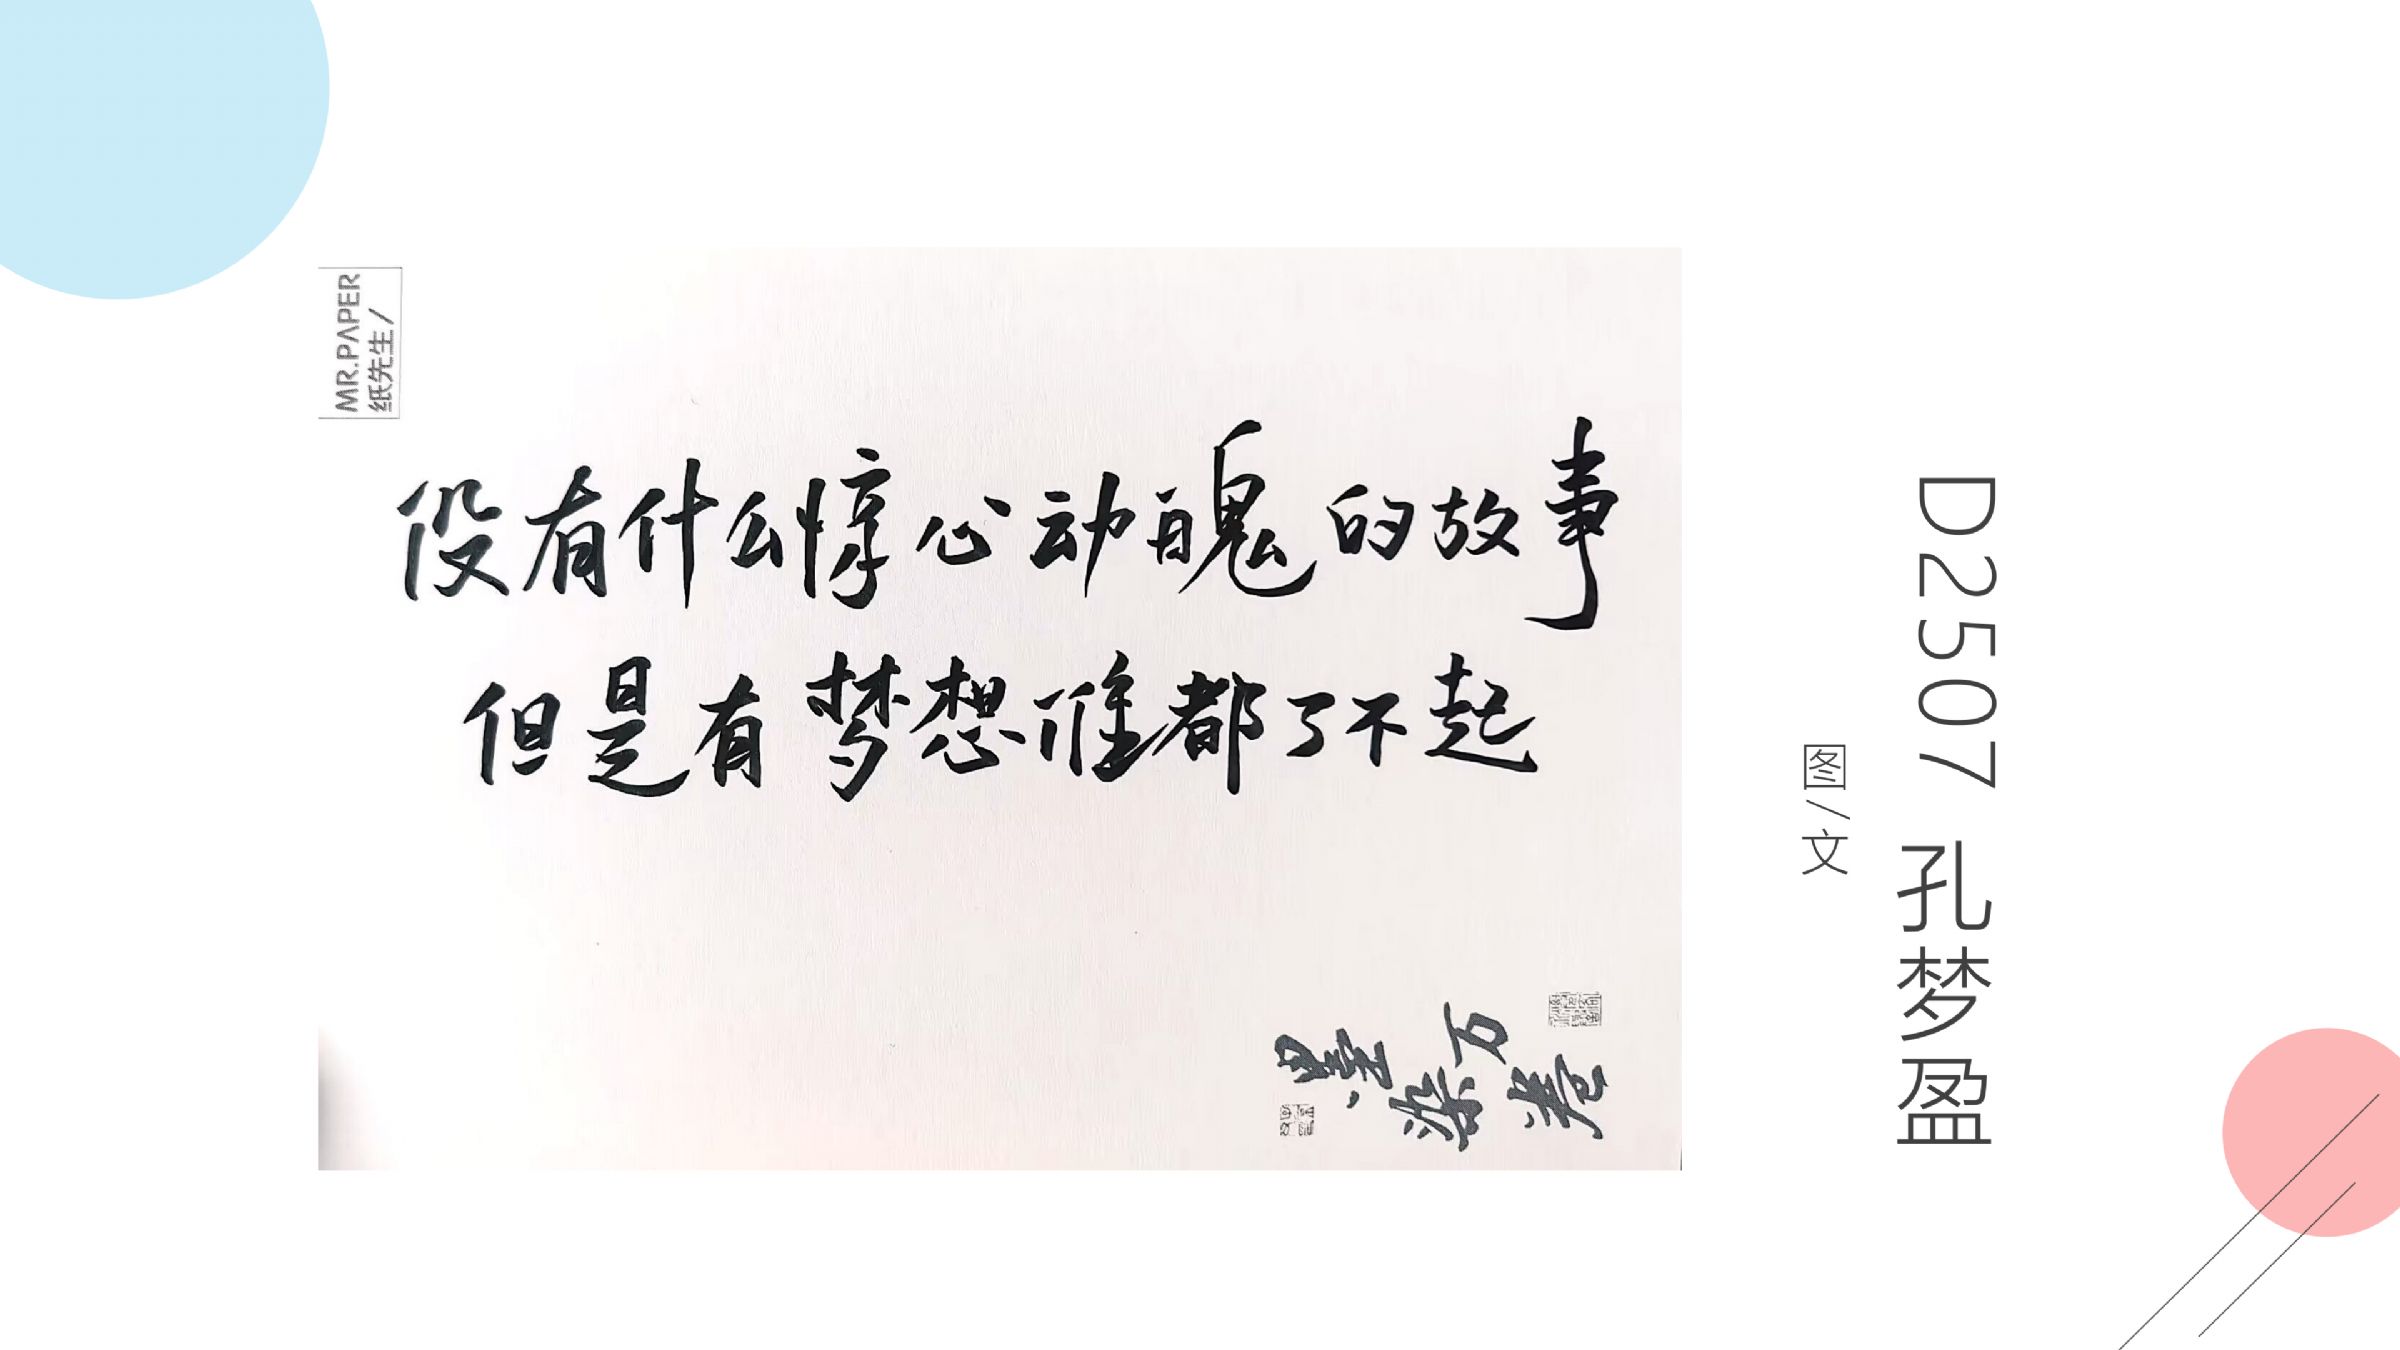 MR.PAPER
纸先生/
没有什么惊心动魄的故事
但是有梦想谁都了不起
D2507 孔梦盈
图/文